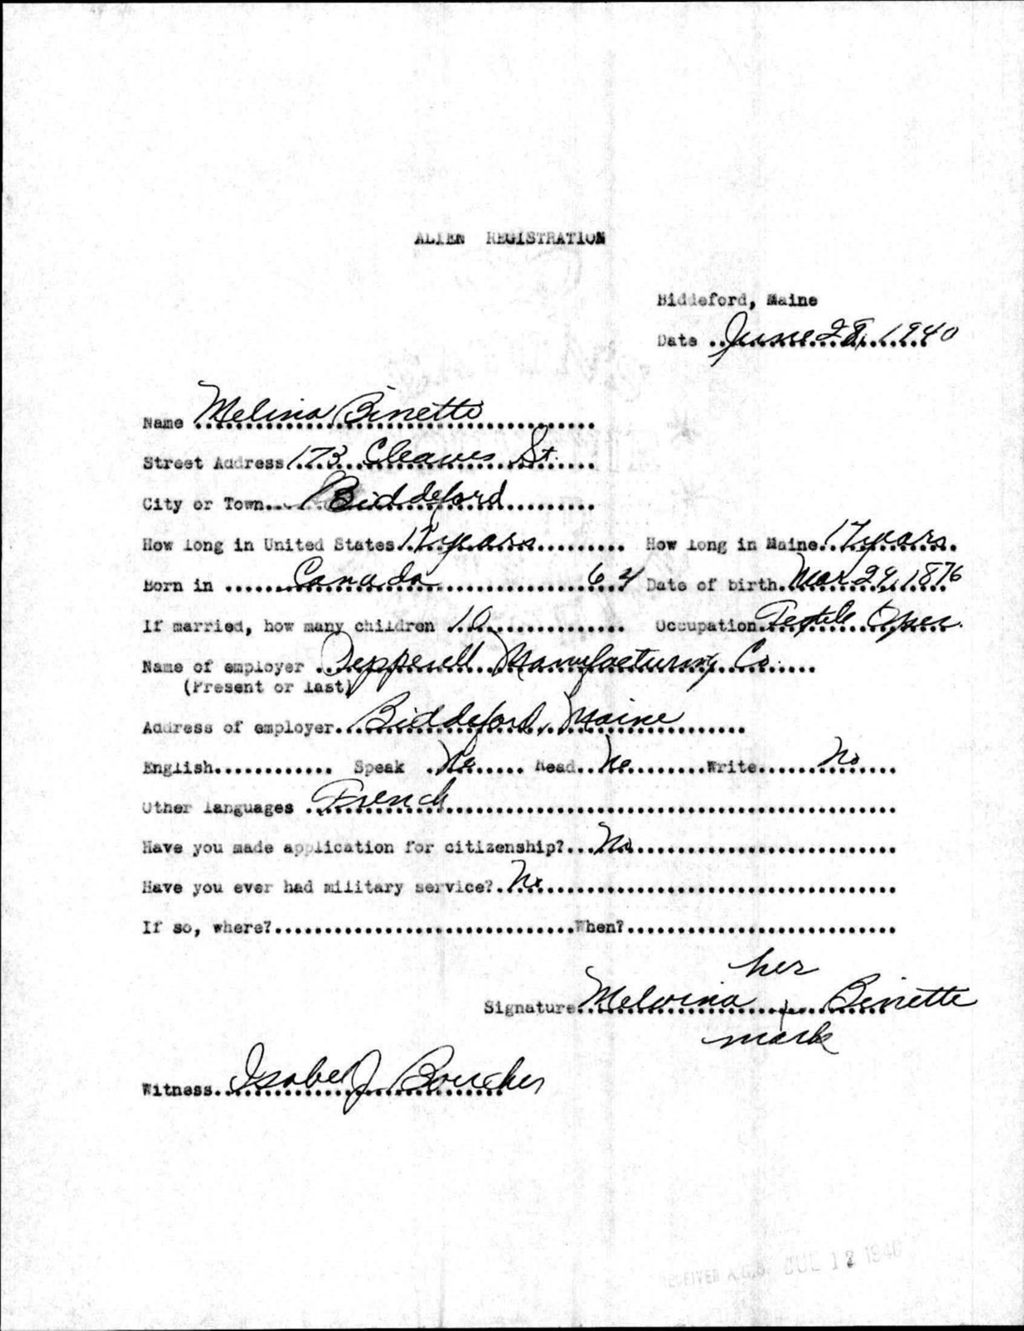 ALIEN REGISTRATION
Biddeford, Maine
Date June 28, 1940
Name Melina Binette
Street Address 173 Cleaves St.
City or Town Biddeford
How long in United States 17 years How long in Maine 17 years
Born in Canada 64 Date of birth Mar 29, 1876
If married, how many children 10 Occupation Textile Oper.
Name of employer Pepperell Manufacturing Co.
(Present or last)
Address of employer Biddeford, Maine
English Speak No Read No Write No
Other languages French
Have you made application for citizenship? No
Have you ever had military service? No
If so, where? When?
her
Signature Melvina x Binette
mark
Witness Isabel J. Boucher
RECEIVED A.G.O. JUL 12 1940